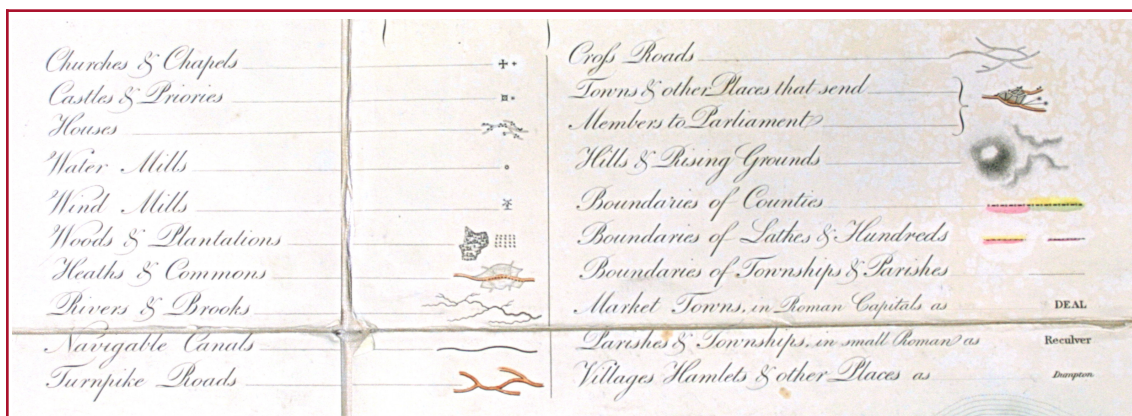 Churches & Chapels
Castles & Priories
Houses
Water Mills
Wind Mills
Woods & Plantations
Heaths & Commons
Rivers & Brooks
Navigable Canals
Turnpike Roads
Croſs Roads
Towns & other Places that send
Members to Parliament
Hills & Rising Grounds
Boundaries of Counties
Boundaries of Lathes & Hundreds
Boundaries of Townships & Parishes
Market Towns, in Roman Capitals as DEAL
Parishes & Townships, in small Roman as Reculver
Villages Hamlets & other Places as Dumpton